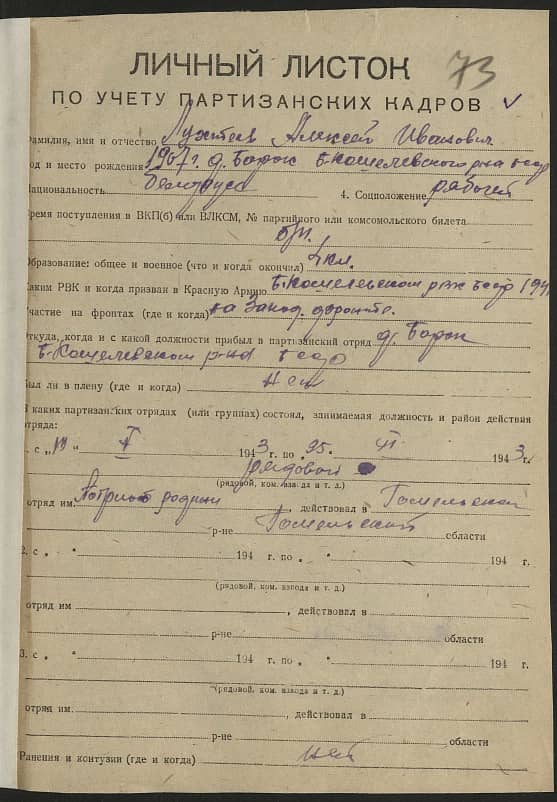 73
ЛИЧНЫЙ ЛИСТОК
ПО УЧЕТУ ПАРТИЗАНСКИХ КАДРОВ
Фамилия, имя и отчество Алексей Иванович
год и место рождения г. д. Борок Б-Кошелевского р-на бсср
Национальность белорус 4. Соцположение рабочий
Время поступления в ВКП(б) или ВЛКСМ, № партийного или комсомольского билета
б/п.
Образование: общее и военное (что и когда окончил) кл.
Каким РВК и когда призван в Красную Армию Б-Кошелевском рвк бсср 194
Участие на фронтах (где и когда) на Запад. фронте.
Откуда, когда и с какой должности прибыл в партизанский отряд д. Борок
Б-Кошелевском р-на бсср
Был ли в плену (где и когда) Нет
В каких партизанских отрядах (или группах) состоял, занимаемая должность и район действия
отряда:
1. с „ " 1943 г. по 25. XI 1943 г.
рядовой
(рядовой, ком. взвода и т. д.)
отряд им. Патриот родины, действовал в Гомельском
р-не Гомельской области
2. с „ " 194 г. по „ " 194 г.
(рядовой, ком. взвода и т. д.)
отряд им , действовал в
р-не области
3. с „ " 194 г. по „ " 194 г.
(рядовой, ком. взвода и т. д.)
отряд им. , действовал в
р-не , области
Ранения и контузии (где и когда) нет